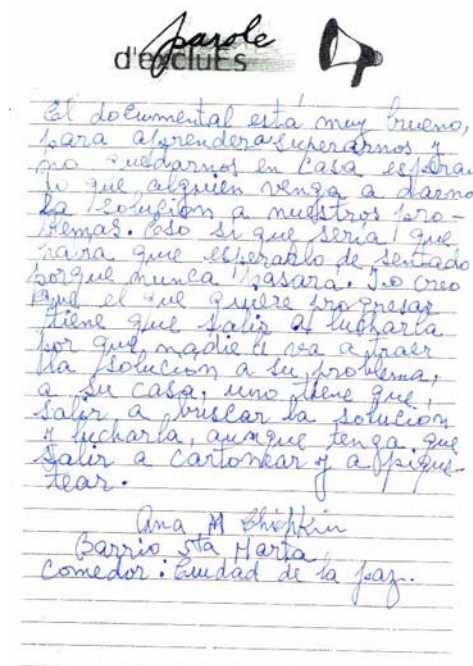 parole
d'excluEs
El documental está muy bueno,
para aprender a superarnos y
no quedarnos en casa esperan
do que alguien venga a darnos
la solución a nuestros pro-
blemas. Eso si que sería que
para que esperarlo de sentado
porque nunca pasara. Yo creo
que el que quiere progresar
tiene que salir a lucharla
por que nadie le va a traer
la solucion a su problema,
a su casa, uno tiene que,
salir a buscar la solución
y lucharla, aunque tenga que
salir a cartonear y a pique-
tear.
Ana M
Barrio Sta Marta
Comedor: Ciudad de la paz.